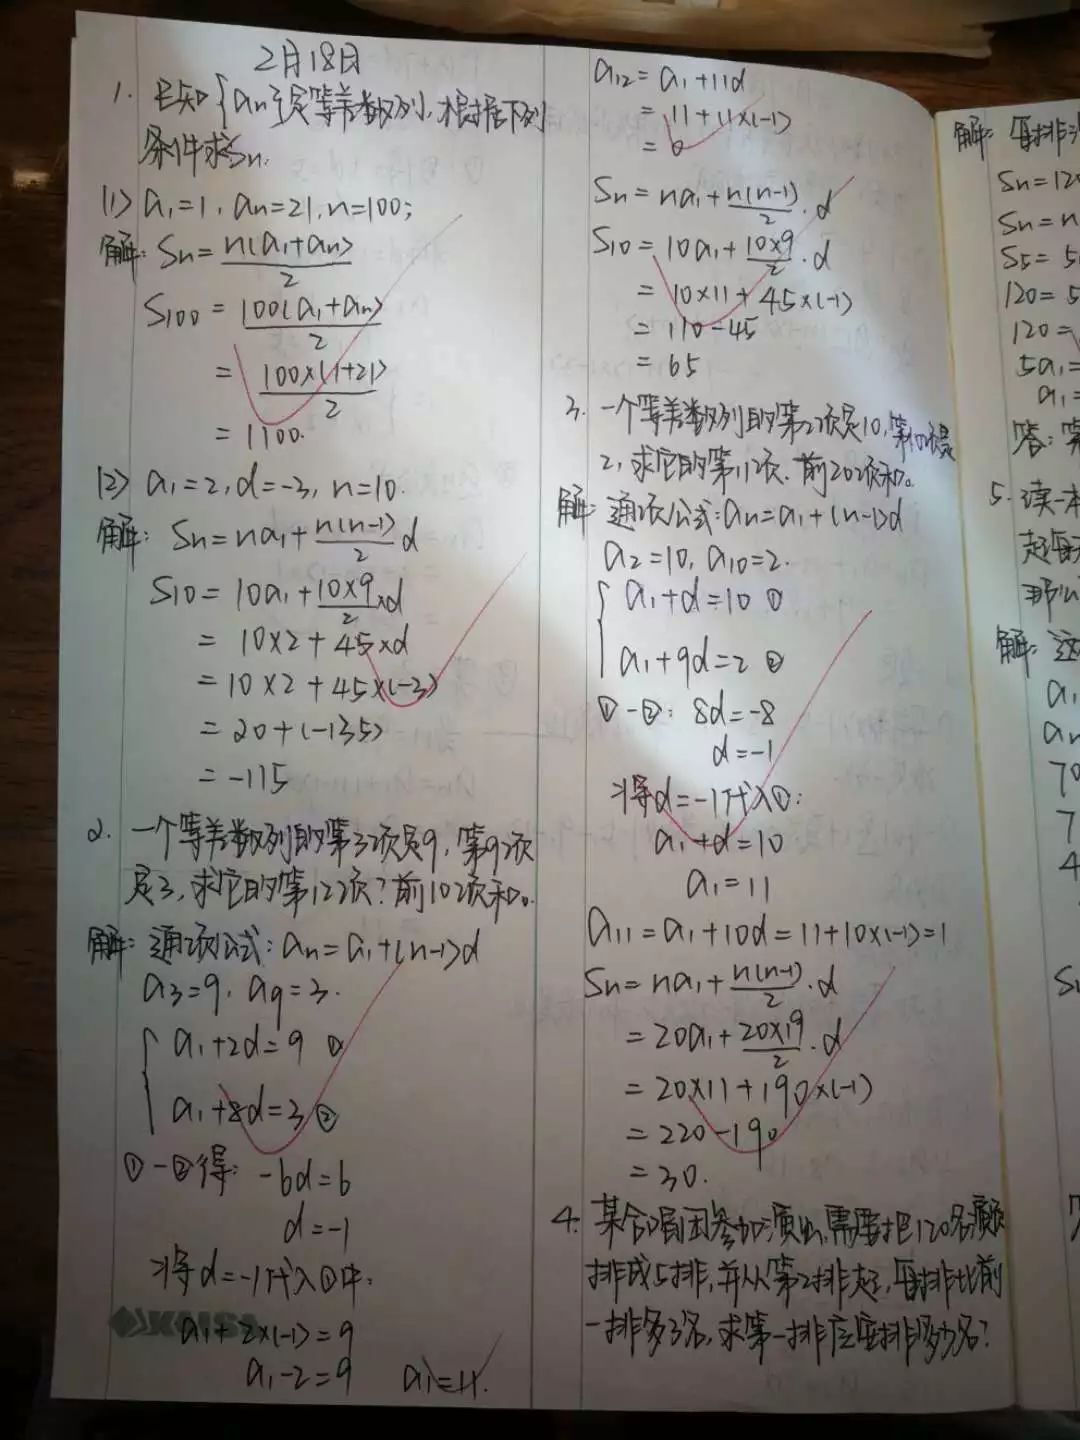 2月18日
1. 已知{an}是等差数列,根据下列
条件求Sn.
(1) a₁=1, an=21, n=100;
解: Sn=n(a₁+an)/2
S100 = 100(a₁+an)/2
= 100×(1+21)/2
= 1100.
(2) a₁=2, d=-3, n=10.
解: Sn=na₁+n(n-1)/2 d
S10 = 10a₁+10×9/2×d
= 10×2+45×d
= 10×2+45×(-3)
= 20+(-135)
= -115
2. 一个等差数列的第3项是9,第9项
是3,求它的第12项?前10项和。
解: 通项公式: an=a₁+(n-1)d
a3=9, a9=3.
a₁+2d=9 ①
a₁+8d=3 ②
①-②得: -6d=6
d=-1
将d=-1代入①中:
a₁+2×(-1)=9
a₁-2=9 a₁=11.
a12=a₁+11d
=11+11×(-1)
=0
Sn=na₁+n(n-1)/2·d
S10=10a₁+10×9/2·d
=10×11+45×(-1)
=110-45
=65
3. 一个等差数列的第2项是10,第10项是
2,求它的第11项.前20项和。
解: 通项公式: an=a₁+(n-1)d
a2=10, a10=2.
a₁+d=10 ①
a₁+9d=2 ②
①-②: 8d=-8
d=-1
将d=-1代入①:
a₁+d=10
a₁=11
a11=a₁+10d=11+10×(-1)=1
Sn=na₁+n(n-1)/2·d
=20a₁+20×19/2·d
=20×11+190×(-1)
=220-190
=30.
4. 某合唱团参加演出,需要把120名演员
排成5排,并从第2排起,每排比前
一排多3名,求第一排应安排多少名?
解: 每排
Sn=120
Sn=n
S5=5
120=5
120=
5a₁=
a₁=
答: 第
5. 读一本
起每天
那么
解: 这
a₁
an
70
7
4
Sn